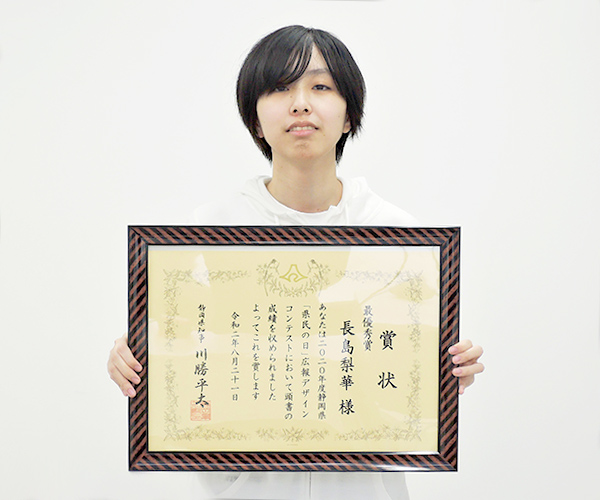 賞状
最優秀賞
長島梨華 様
あなたは二〇二〇年度静岡県
「県民の日」広報デザイン
コンテストにおいて頭書の
成績を収められました
よってこれを賞します
令和二年八月二十一日
静岡県知事 川勝平太